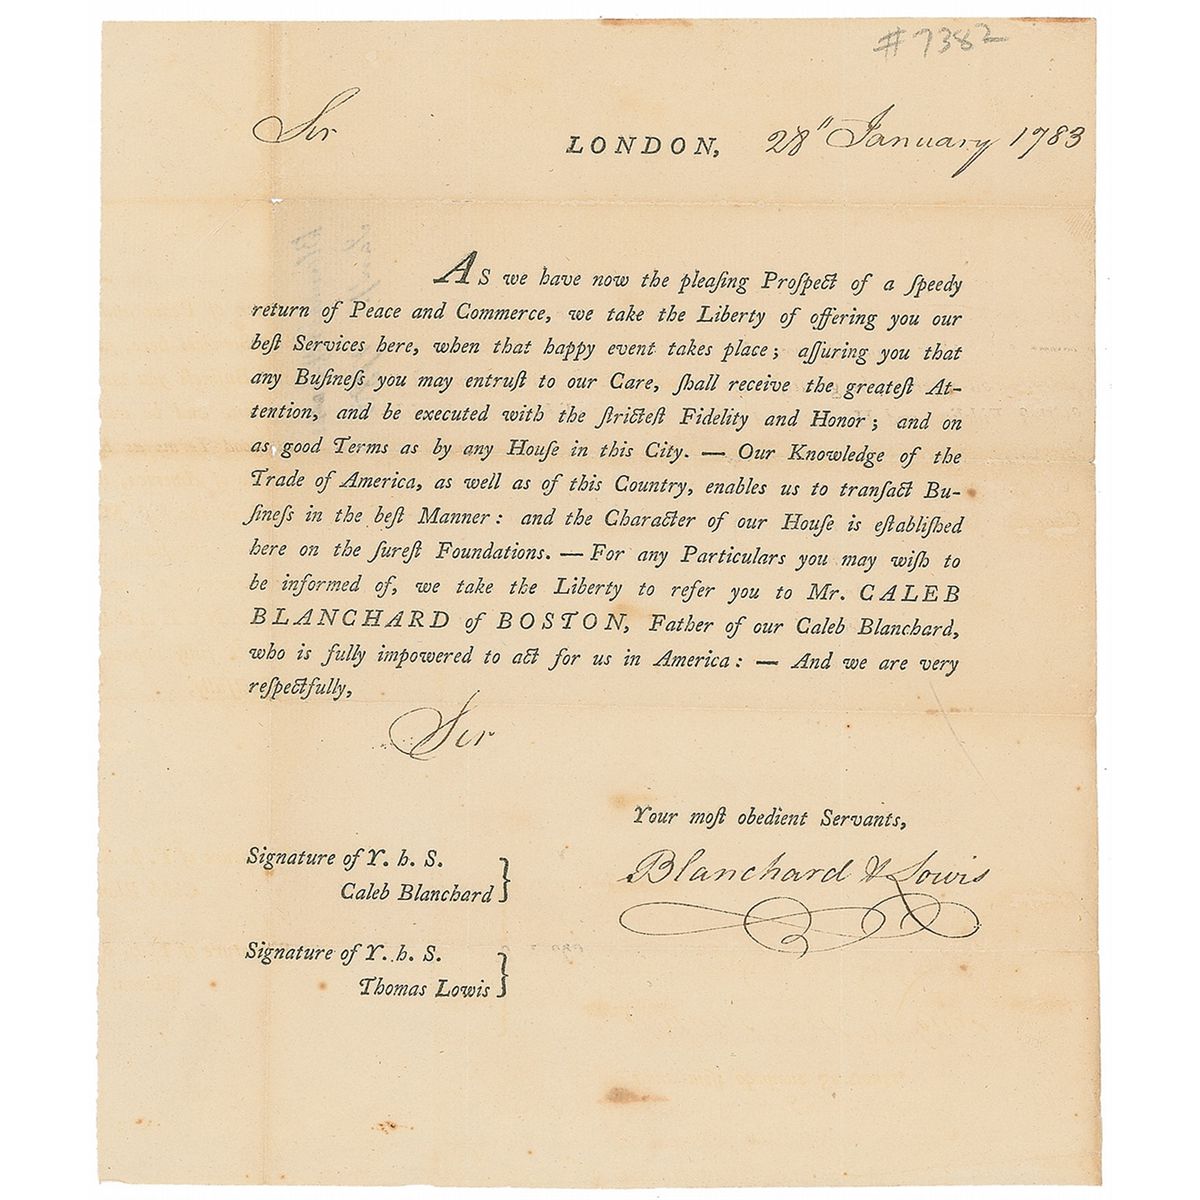 #7382
Sir
LONDON, 28" January 1783
As we have now the pleaſing Proſpect of a ſpeedy
return of Peace and Commerce, we take the Liberty of offering you our
beſt Services here, when that happy event takes place; aſſuring you that
any Buſineſs you may entruſt to our Care, ſhall receive the greateſt At-
tention, and be executed with the ſtricteſt Fidelity and Honor; and on
as good Terms as by any Houſe in this City. — Our Knowledge of the
Trade of America, as well as of this Country, enables us to tranſact Bu-
ſineſs in the beſt Manner: and the Character of our Houſe is eſtabliſhed
here on the ſureſt Foundations. — For any Particulars you may wiſh to
be informed of, we take the Liberty to refer you to Mr. CALEB
BLANCHARD of BOSTON, Father of our Caleb Blanchard,
who is fully impowered to act for us in America: — And we are very
reſpectfully,
Sir
Your moſt obedient Servants,
Blanchard & Lowis
Signature of Y. h. S.
Caleb Blanchard }
Signature of Y. h. S.
Thomas Lowis }